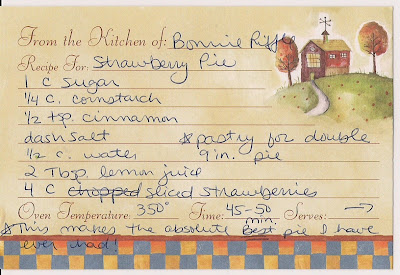 From the Kitchen of: Bonnie Riffle
Recipe For: Strawberry Pie
1 C Sugar
1/4 c. cornstarch
1/2 tsp. cinnamon
dash salt * pastry for double
1/2 c. water 9 in. pie
2 Tbsp. lemon juice
4 C chopped sliced strawberries
Oven Temperature: 350° Time: 45-50 min. Serves: →
* This makes the absolute Best pie I have
ever had!